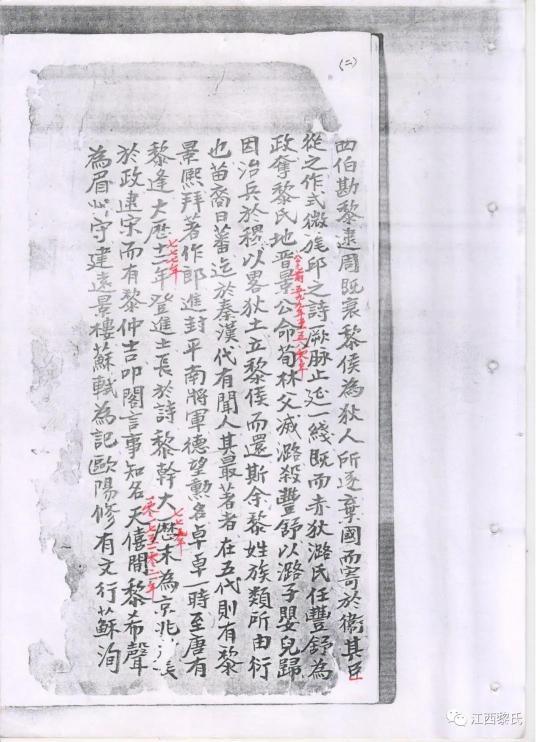 (二)
西伯勘黎逮周既衰黎侯為狄人所逐棄國而寄於衞其臣
從之作式微旄邱之詩厥脉止延一綫既而赤狄潞氏任豐舒為
政奪黎氏地晋景公命荀林父滅潞殺豐舒以潞子嬰兒歸
公元前五九九年至五八零年
因治兵於稷以畧狄土立黎侯而還斯余黎姓族類所由衍
也苗裔日蕃迄於秦漢代有聞人其最著者在五代則有黎
景熙拜著作郎進封平南將軍德望勲名卓卓一時至唐有
七七七年
七七九年
黎逢大歷十二年登進士長於詩黎幹大歷末為京兆
於政逮宋而有黎仲吉叩閽言事知名天僖間黎希聲
為眉山守建遠景樓蘇軾為記歐陽修有文行蘇洵
江西黎氏